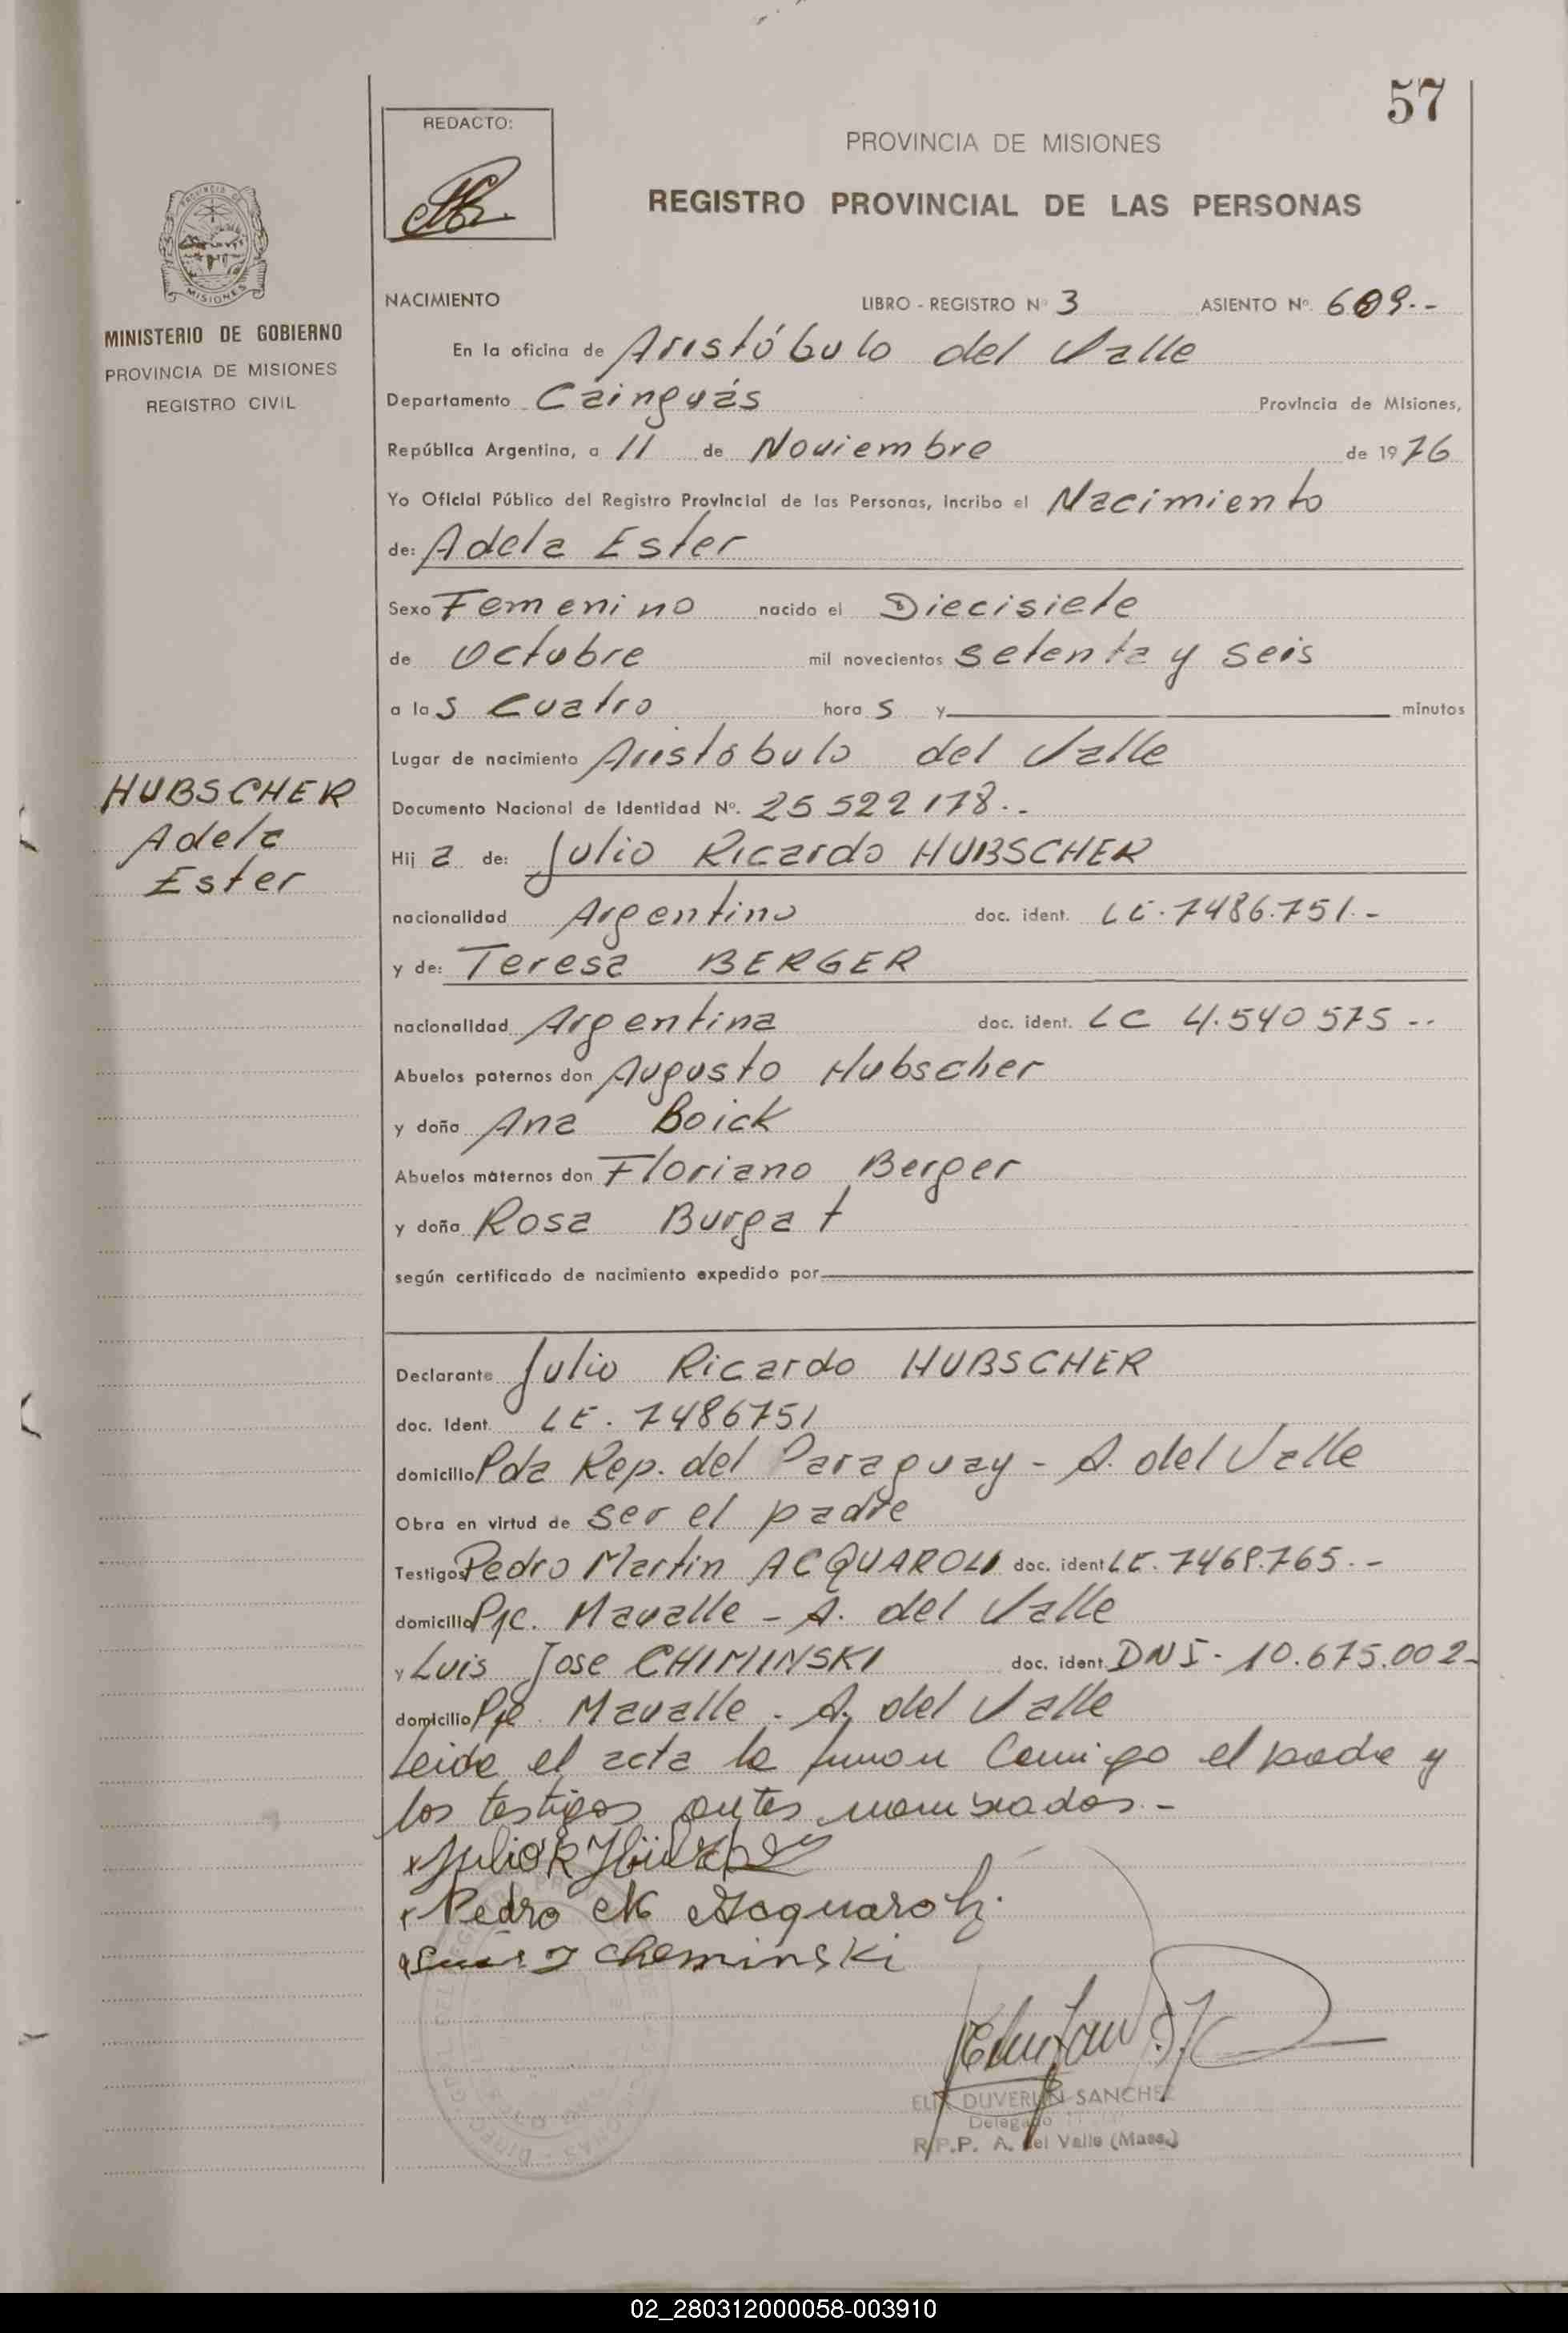 57
REDACTO:
PROVINCIA DE MISIONES
REGISTRO PROVINCIAL DE LAS PERSONAS
MISIONES
MINISTERIO DE GOBIERNO
PROVINCIA DE MISIONES
REGISTRO CIVIL
NACIMIENTO LIBRO - REGISTRO Nº 3 ASIENTO Nº. 609.-
En la oficina de Aristóbulo del Valle
Departamento Cainguás Provincia de Misiones,
República Argentina, a 11 de Noviembre de 1976
Yo Oficial Público del Registro Provincial de las Personas, incribo el Nacimiento
de: Adela Ester
Sexo Femenino nacido el Diecisiete
de Octubre mil novecientos setenta y seis
a las cuatro horas y minutos
Lugar de nacimiento Aristóbulo del Valle
HUBSCHER
Adela
Ester
Documento Nacional de Identidad Nº. 25 522 178.-
Hija de: Julio Ricardo HUBSCHER
nacionalidad Argentino doc. ident. LE. 7486.751.-
y de: Teresa BERGER
nacionalidad Argentina doc. ident. LC 4.540 575 --
Abuelos paternos don Augusto Hubscher
y doña Ana Boick
Abuelos maternos don Floriano Berger
y doña Rosa Burgat
según certificado de nacimiento expedido por
Declarante Julio Ricardo HUBSCHER
doc. Ident. LE. 7486751
domicilio Pda Rep. del Paraguay - A. del Valle
Obra en virtud de ser el padre
Testigos Pedro Martin ACQUAROLI doc. ident LE. 7469.765.-
domicilio Pje. Mavalle - A. del Valle
y Luis Jose CHIMINSKI doc. ident. DNI - 10.675.002-
domicilio Pje. Mavalle - A. del Valle
Leida el acta la firman Conmigo el padre y
los testigos antes nombrados.-
Julio R
Pedro M Acquaroli
Luis J Cheminski
DUVERLIN SANCHEZ
Delegado
R.P.P. A. del Valle (Mnes.)
02_280312000058-003910